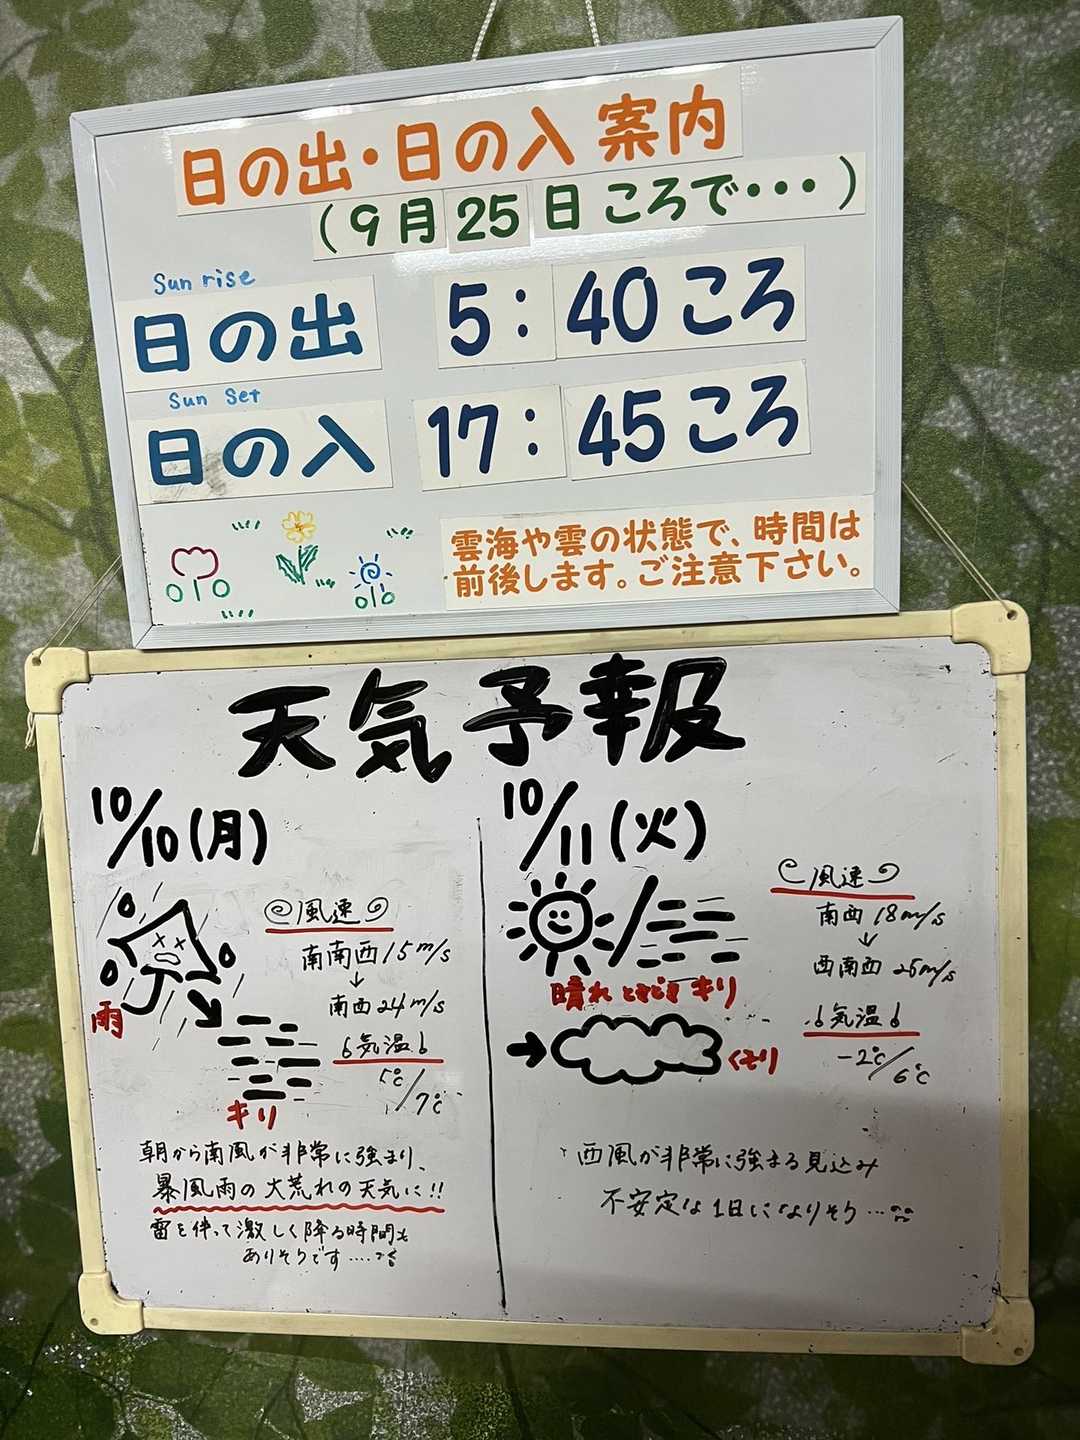 日の出・日の入 案内
(9月25日ころで・・・)
Sun rise
日の出 5:40ころ
Sun Set
日の入 17:45ころ
雲海や雲の状態で、時間は
前後します。ご注意下さい。
天気予報
10/10(月)
風速
南南西 15m/s
↓
南西 24m/s
雨
気温
5℃/7℃
キリ
朝から南風が非常に強まり、
暴風雨の大荒れの天気に!!
雷を伴って激しく降る時間も
ありそうです....
10/11(火)
風速
南西 18m/s
↓
西南西 25m/s
晴れ ときどき キリ
気温
-2℃/6℃
くもり
西風が非常に強まる見込み
不安定な1日になりそう...